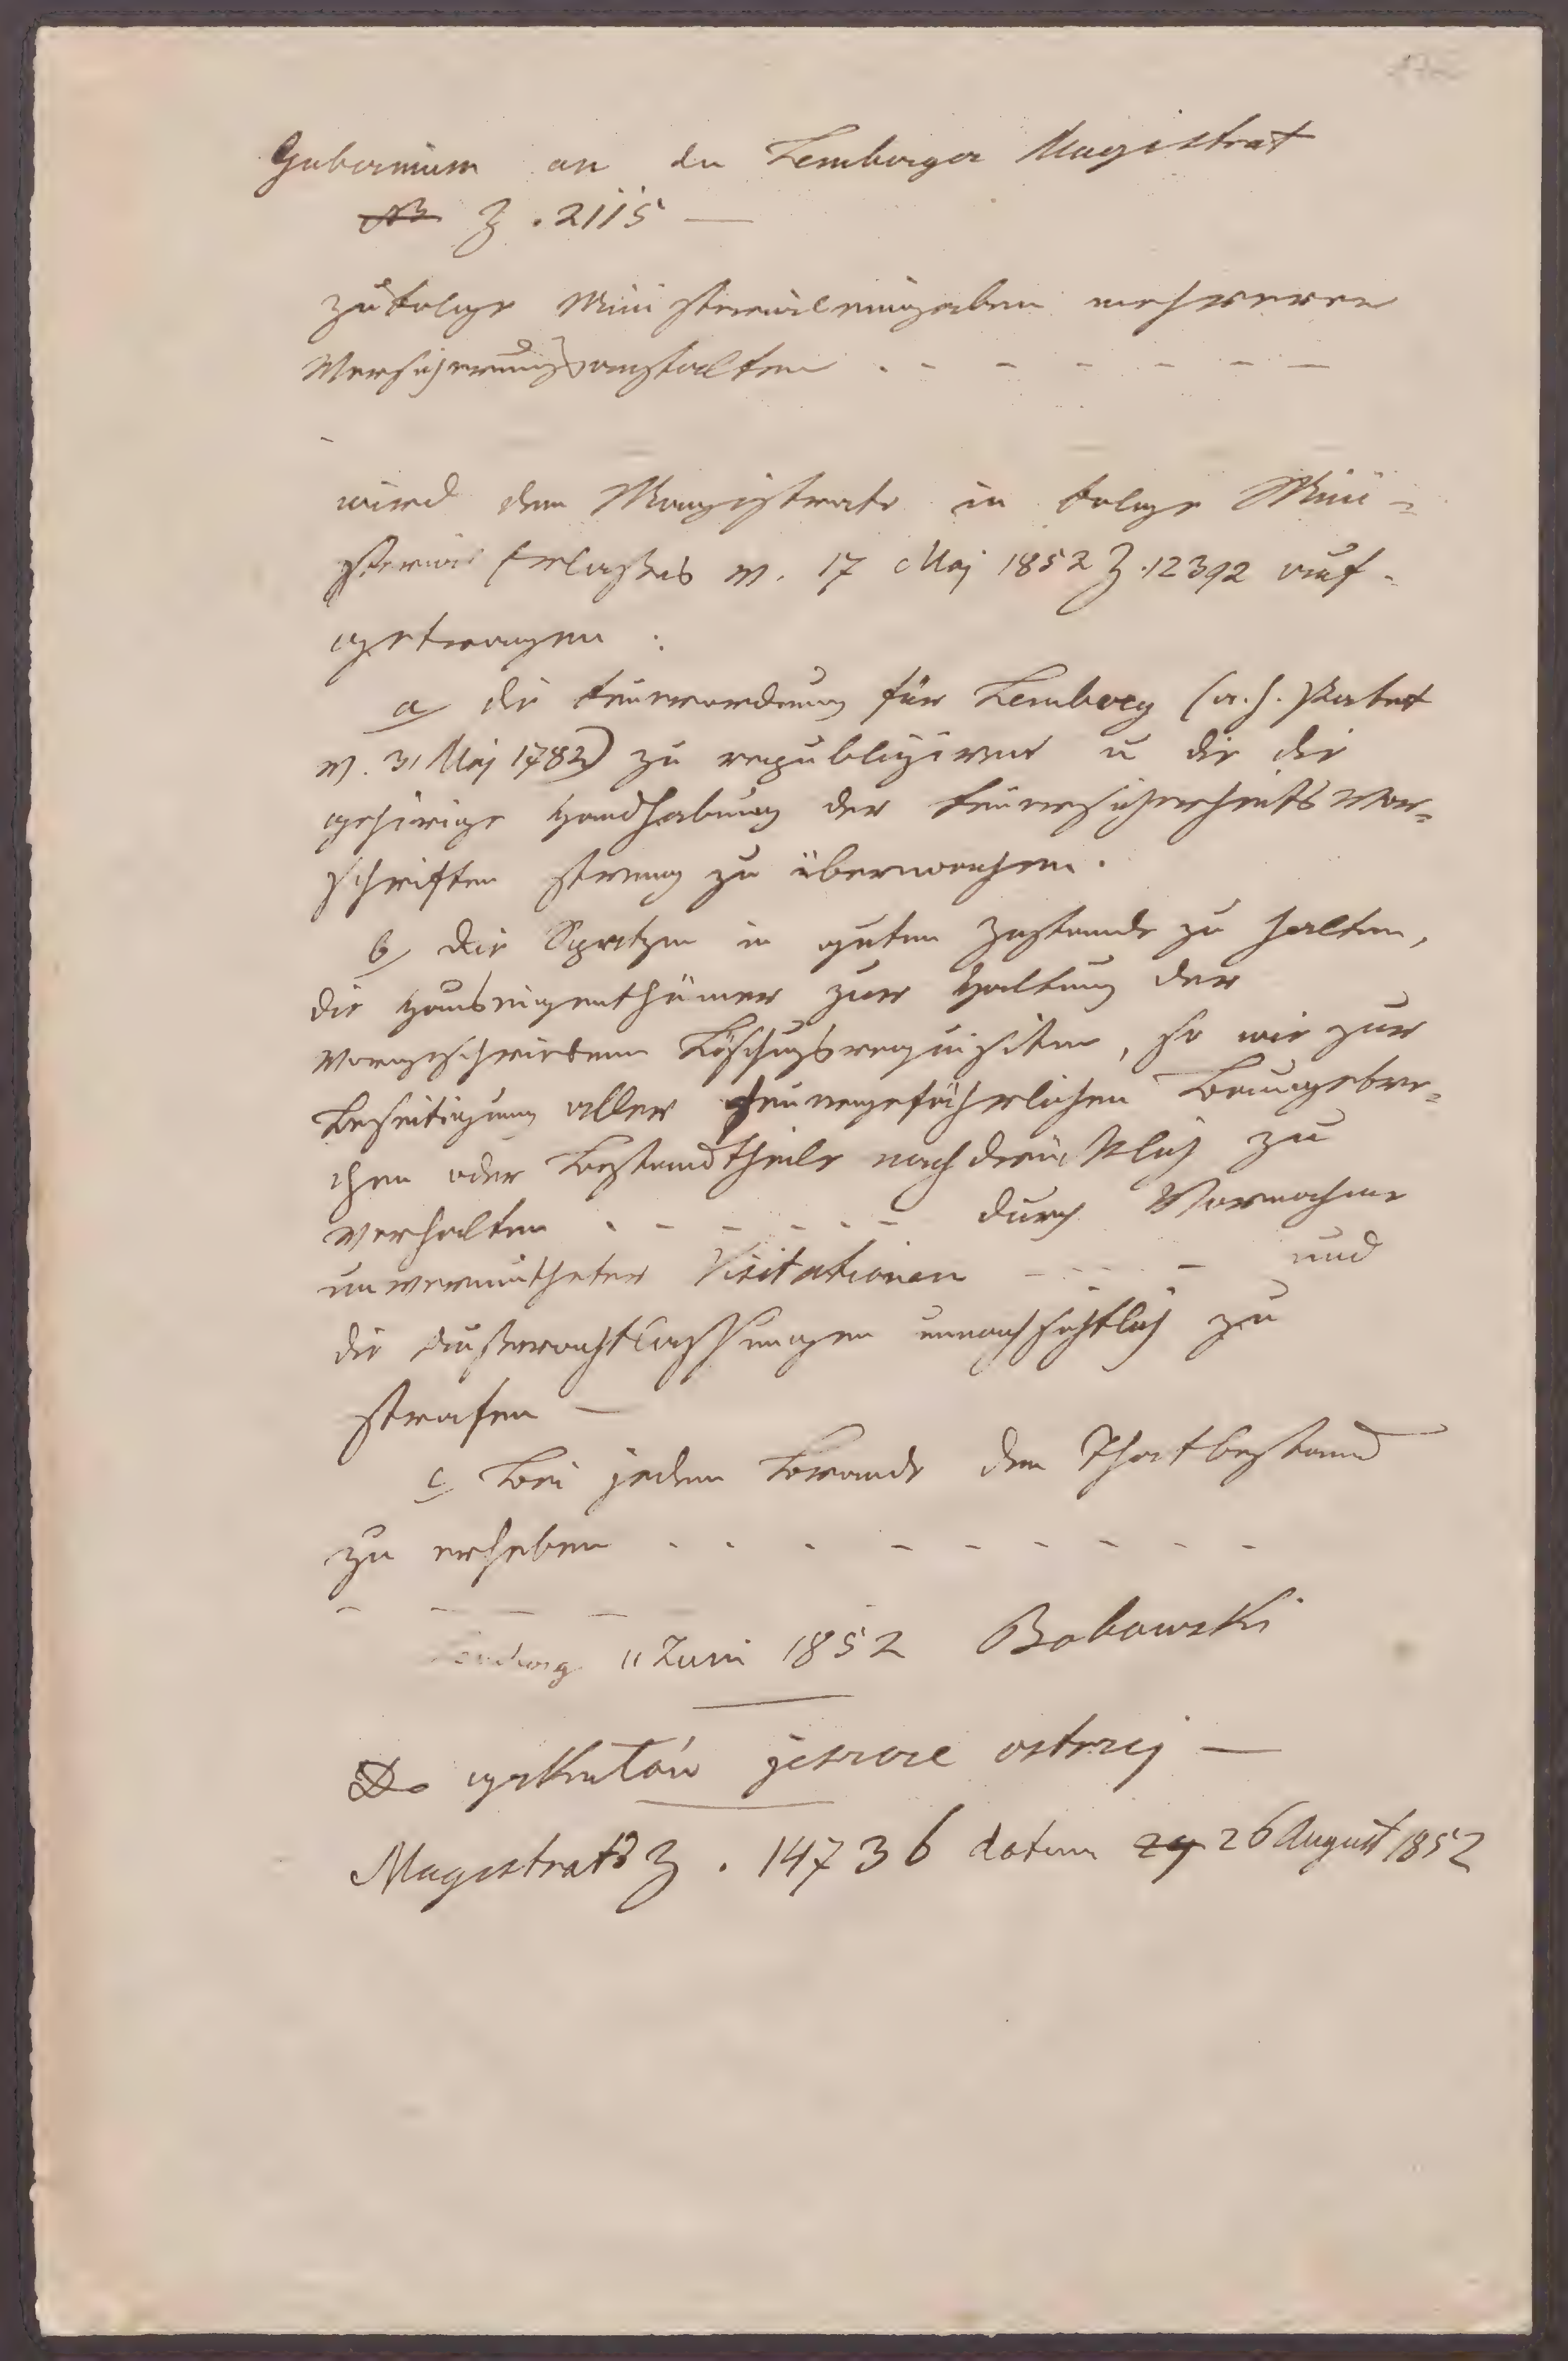 Gubernium an den Lemberger Magistrat
Z. 2115 —
zufolge Ministerialeingaben mehrerer
Versicherungsanstalten . - - - - - —
wird dem Magistrate in Folge Mini=
sterial Erlaßes v. 17 Maj 1852 Z. 12392 auf-
getragen :
a/ die Feuerordnung für Lemberg (a. h. Patent
v. 31 Maj 1782) zu republiziren u die die
gehörige Handhabung der Feuersicherheits Vor=
schriften streng zu überwachen.
b/ die Spritzen in guten Zustande zu halten,
die Hauseigenthümer zur Haltung der
vorgeschriebenen Löschungsrequisiten, so wie zur
Beseitigung aller feuergefährlichen Baugebre=
chen oder Bestandtheile nachdrücklich zu
verhalten . - - - . . - durch Vornahme
unvermutheter Visitationen - - - - und
die Außerachtlassungen unnachsichtlich zu
strafen —
c/ Bei jedem Brande den Thatbestand
zu erheben . . . - - - - - - -
- - - -
Lemberg 11 Juni 1852 Bobowski
Do cyrkułów jeszcze ostrzej —
Magistrats Z. 14736 datum 26 August 1852